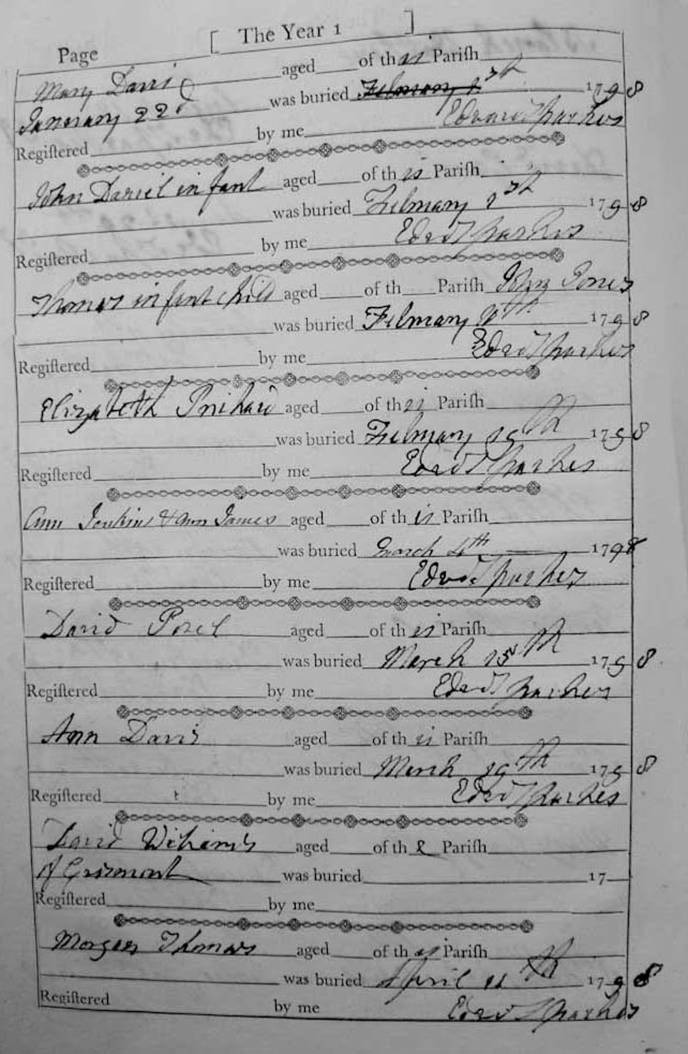 Page [ The Year 1 ]
Mary Davis aged of this Pariſh
January 22d was buried February 1st 1798
Regiſtered by me Edward Parkes
John Daniel infant aged of this Pariſh
was buried February 1st 1798
Regiſtered by me Edwd Parkes
Thomas infant child aged of th Pariſh John Jones
was buried February th 1798
Regiſtered by me Edwd Parkes
Elizabeth Prichard aged of this Pariſh
was buried February 19th 1798
Regiſtered by me Edwd Parkes
Ann Jenkins & Ann James aged of this Pariſh
was buried March 4th 1798
Regiſtered by me Edwd Parkes
David Powel aged of this Pariſh
was buried March 15th 1798
Regiſtered by me Edwd Parkes
Ann Davis aged of this Pariſh
was buried March 19th 1798
Regiſtered by me Edwd Parkes
David Williams aged of the Pariſh
of Grosmont was buried 17
Regiſtered by me
Morgan Thomas aged of this Pariſh
was buried April 11th 1798
Regiſtered by me Edwd Parkes